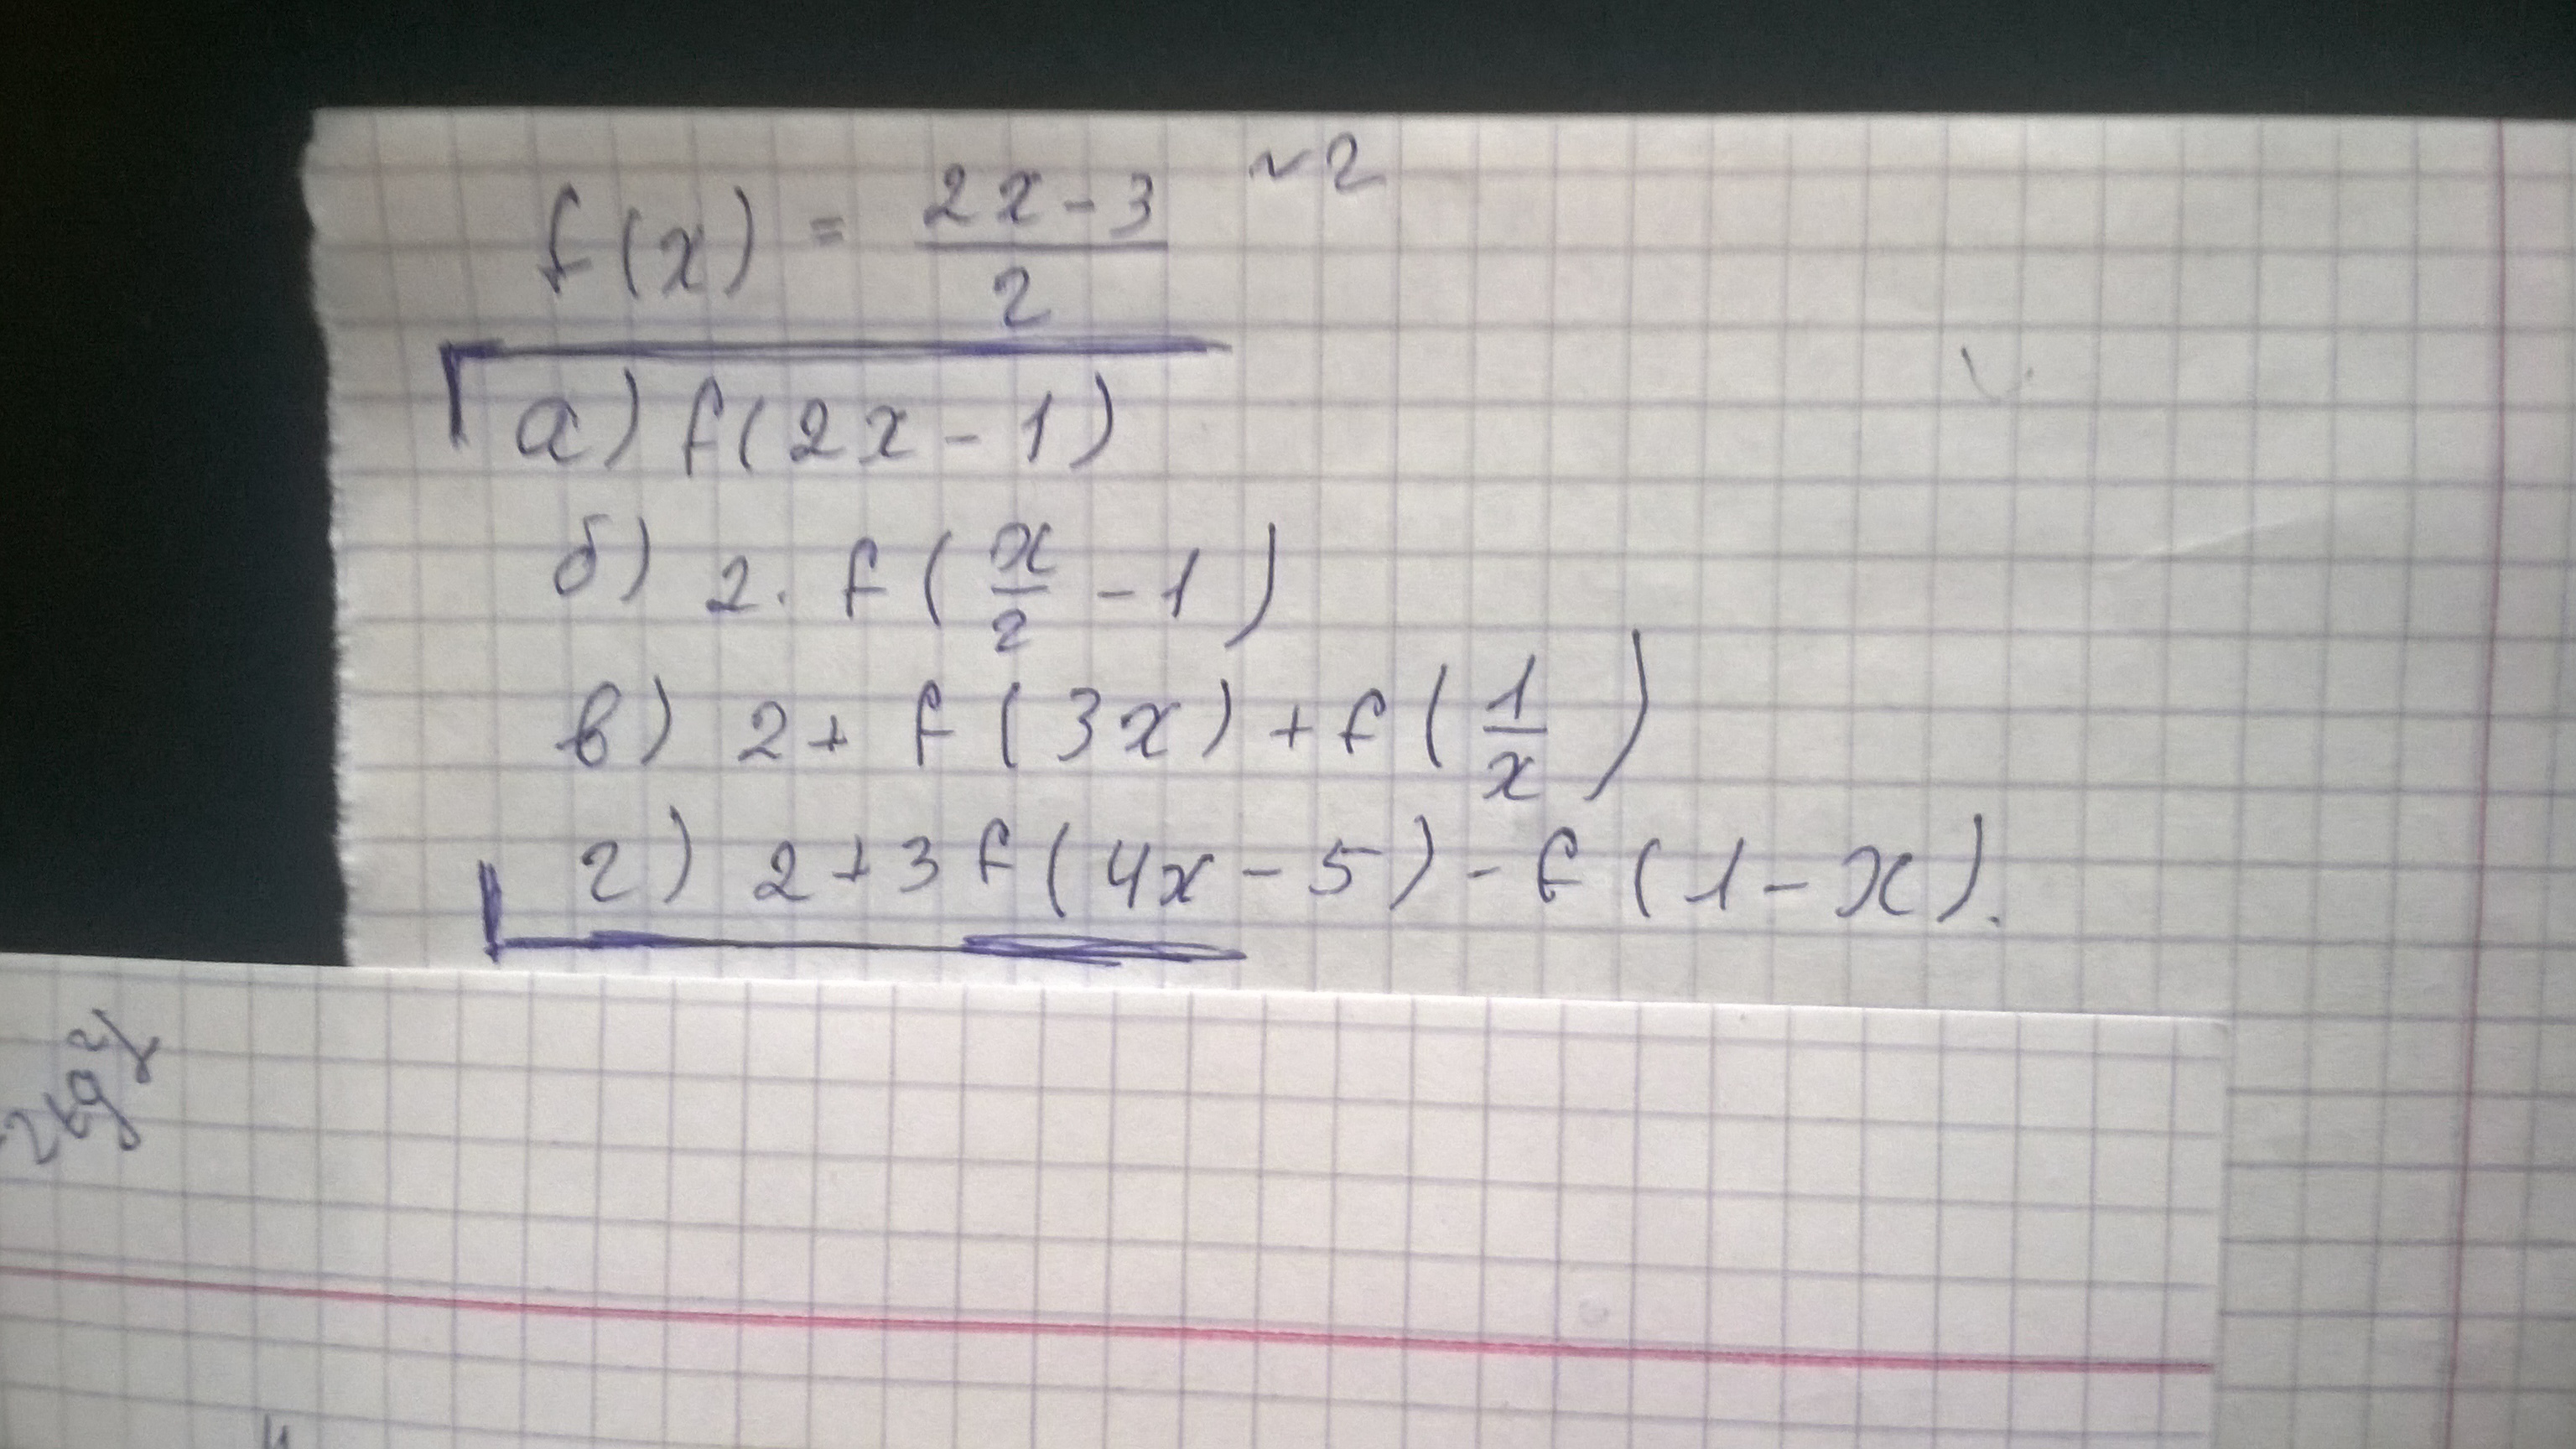 ~2
f(x) = \frac{2x-3}{2}
а) f(2x-1)
б) 2. f(\frac{x}{2} -1)
в) 2+ f(3x) + f(\frac{1}{x})
г) 2+3f(4x-5)-f(1-x).